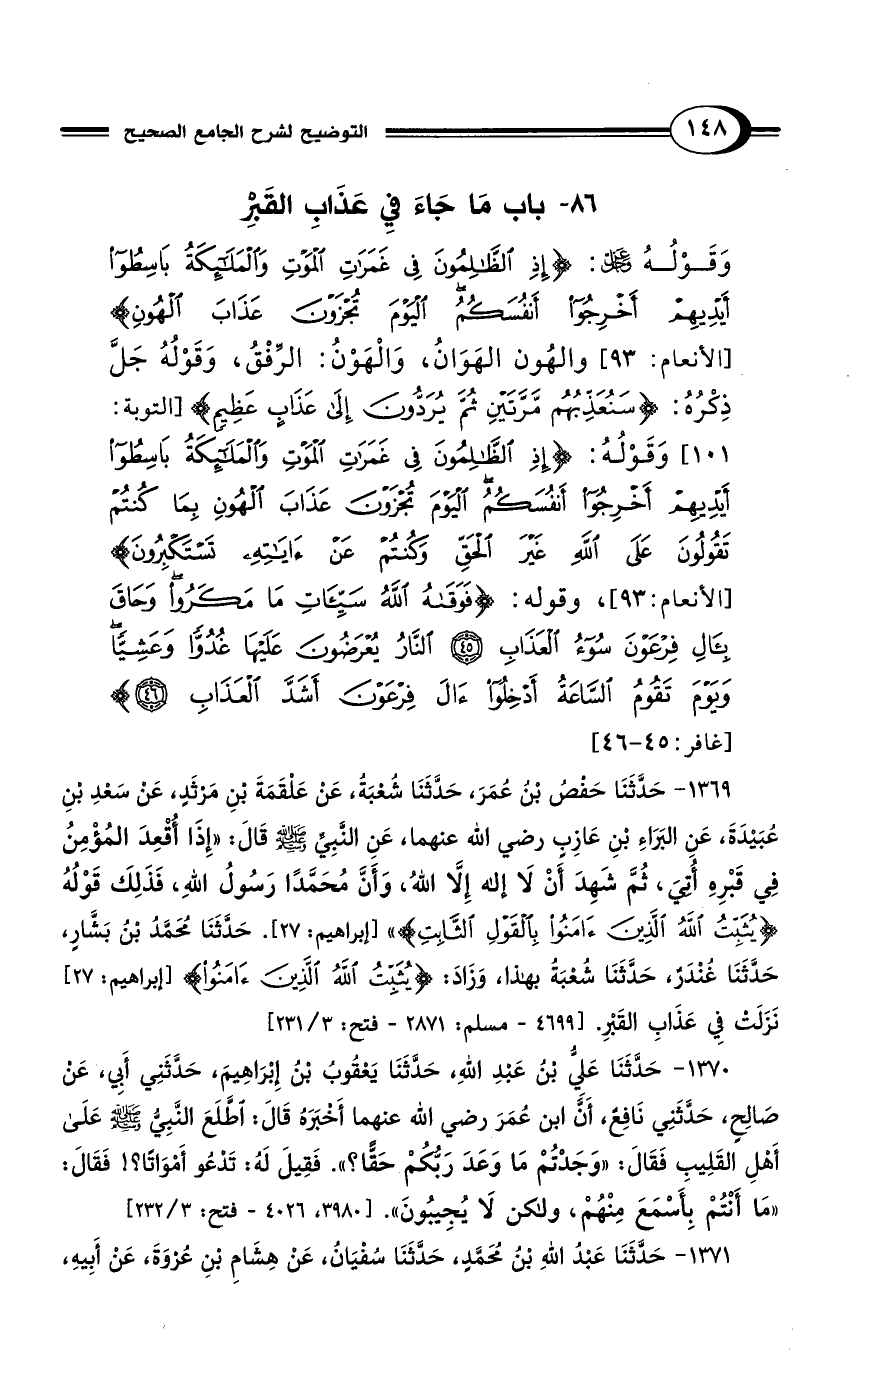 ١٤٨ التوضيح لشرح الجامع الصحيح
٨٦- باب مَا جَاءَ فِي عَذَابِ القَبْرِ
وَقَوْلُهُ ﷿: ﴿إِذِ ٱلظَّٰلِمُونَ فِى غَمَرَٰتِ ٱلْمَوْتِ وَٱلْمَلَٰٓئِكَةُ بَاسِطُوٓا۟
أَيْدِيهِمْ أَخْرِجُوٓا۟ أَنفُسَكُمُ ۖ ٱلْيَوْمَ تُجْزَوْنَ عَذَابَ ٱلْهُونِ﴾
[الأنعام: ٩٣] والهُون الهَوَانُ، وَالْهَوْنُ: الرِّفْقُ، وَقَوْلُهُ جَلَّ
ذِكْرُهُ: ﴿سَنُعَذِّبُهُم مَّرَّتَيْنِ ثُمَّ يُرَدُّونَ إِلَىٰ عَذَابٍ عَظِيمٍ﴾ [التوبة:
١٠١] وَقَوْلُهُ: ﴿إِذِ ٱلظَّٰلِمُونَ فِى غَمَرَٰتِ ٱلْمَوْتِ وَٱلْمَلَٰٓئِكَةُ بَاسِطُوٓا۟
أَيْدِيهِمْ أَخْرِجُوٓا۟ أَنفُسَكُمُ ۖ ٱلْيَوْمَ تُجْزَوْنَ عَذَابَ ٱلْهُونِ بِمَا كُنتُمْ
تَقُولُونَ عَلَى ٱللَّهِ غَيْرَ ٱلْحَقِّ وَكُنتُمْ عَنْ ءَايَٰتِهِۦ تَسْتَكْبِرُونَ﴾
[الأنعام:٩٣]، وقوله: ﴿فَوَقَىٰهُ ٱللَّهُ سَيِّـَٔاتِ مَا مَكَرُوا۟ ۖ وَحَاقَ
بِـَٔالِ فِرْعَوْنَ سُوٓءُ ٱلْعَذَابِ ۝٤٥ ٱلنَّارُ يُعْرَضُونَ عَلَيْهَا غُدُوًّا وَعَشِيًّا ۖ
وَيَوْمَ تَقُومُ ٱلسَّاعَةُ أَدْخِلُوٓا۟ ءَالَ فِرْعَوْنَ أَشَدَّ ٱلْعَذَابِ ۝٤٦﴾
[غافر: ٤٥-٤٦]
١٣٦٩- حَدَّثَنَا حَفْصُ بْنُ عُمَرَ، حَدَّثَنَا شُعْبَةُ، عَنْ عَلْقَمَةَ بْنِ مَرْثَدٍ، عَنْ سَعْدِ بْنِ
عُبَيْدَةَ، عَنِ البَرَاءِ بْنِ عَازِبٍ رضي الله عنهما، عَنِ النَّبِيِّ ﷺ قَالَ: «إِذَا أُقْعِدَ المُؤْمِنُ
فِي قَبْرِهِ أُتِيَ، ثُمَّ شَهِدَ أَنْ لَا إله إِلَّا اللهُ، وَأَنَّ مُحَمَّدًا رَسُولُ اللهِ، فَذَلِكَ قَوْلُهُ
﴿يُثَبِّتُ ٱللَّهُ ٱلَّذِينَ ءَامَنُوا۟ بِٱلْقَوْلِ ٱلثَّابِتِ﴾» [إبراهيم: ٢٧]. حَدَّثَنَا مُحَمَّدُ بْنُ بَشَّارٍ،
حَدَّثَنَا غُنْدَرٌ، حَدَّثَنَا شُعْبَةُ بهذا، وَزَادَ: ﴿يُثَبِّتُ ٱللَّهُ ٱلَّذِينَ ءَامَنُوا۟﴾ [إبراهيم: ٢٧]
نَزَلَتْ فِي عَذَابِ القَبْرِ. [٤٦٩٩ - مسلم: ٢٨٧١ - فتح: ٣/ ٢٣١]
١٣٧٠- حَدَّثَنَا عَلِيُّ بْنُ عَبْدِ اللهِ، حَدَّثَنَا يَعْقُوبُ بْنُ إِبْرَاهِيمَ، حَدَّثَنِي أَبِي، عَنْ
صَالِحٍ، حَدَّثَنِي نَافِعٌ، أَنَّ ابن عُمَرَ رضي الله عنهما أَخْبَرَهُ قَالَ: اَطَّلَعَ النَّبِيُّ ﷺ عَلَىٰ
أَهْلِ القَلِيبِ فَقَالَ: «وَجَدْتُمْ مَا وَعَدَ رَبُّكُمْ حَقًّا؟». فَقِيلَ لَهُ: تَدْعُو أَمْوَاتًا؟! فَقَالَ:
«مَا أَنْتُمْ بِأَسْمَعَ مِنْهُمْ، ولكن لَا يُجِيبُونَ». [٣٩٨٠، ٤٠٢٦ - فتح: ٣/ ٢٣٢]
١٣٧١- حَدَّثَنَا عَبْدُ اللهِ بْنُ مُحَمَّدٍ، حَدَّثَنَا سُفْيَانُ، عَنْ هِشَامِ بْنِ عُرْوَةَ، عَنْ أَبِيهِ،